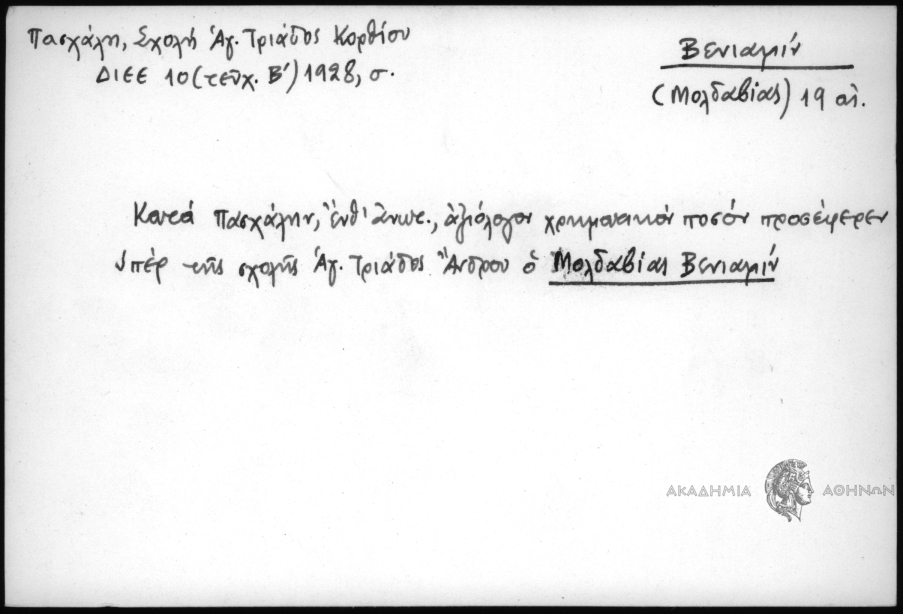 Πασχάλη, Σχολή Ἁγ. Τριάδος Κορθίου
ΔΙΕΕ 10 (τεῦχ. Β') 1928, σ.
Βενιαμίν
(Μολδαβίας) 19 αἰ.
Κατά Πασχάλην, ἔνθ' ἄνωτ., ἀξιόλογον χρηματικόν ποσόν προσέφερεν
ὑπέρ τῆς σχολῆς Ἁγ. Τριάδος Ἄνδρου ὁ Μολδαβίας Βενιαμίν
ΑΚΑΔΗΜΙΑ ΑΘΗΝΩΝ